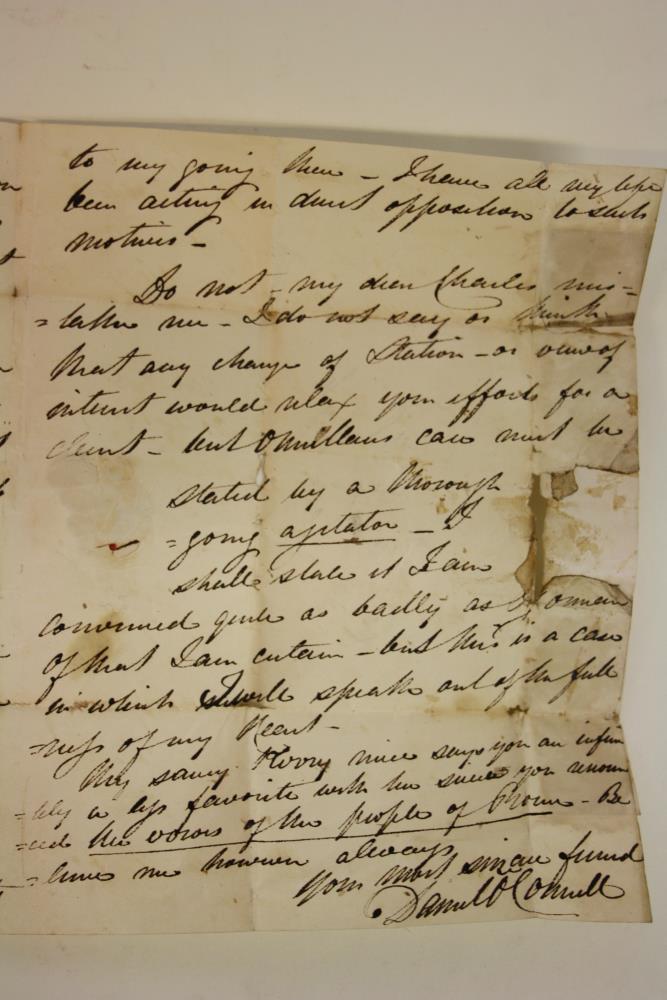 to my going there – I have all my life
been acting in direct opposition to such
motives –
Do not – my dear Charles mis-
=take me – I do not say or think
that any change of Station – or view of
interest would relax your efforts for a
client – but O'Mullans case must be
stated by a thorough
=going agitator – I
shall state it I am
convinced quite as badly as
of that I am certain – but this is a case
in which I will speak out of the full
=ness of my Heart –
My saucy niece says you are infin
=itely a less favorite with her since you renoun
=ced the voices of the people of – Be
=lieve me however always
Your most sincere friend
Daniel O'Connell